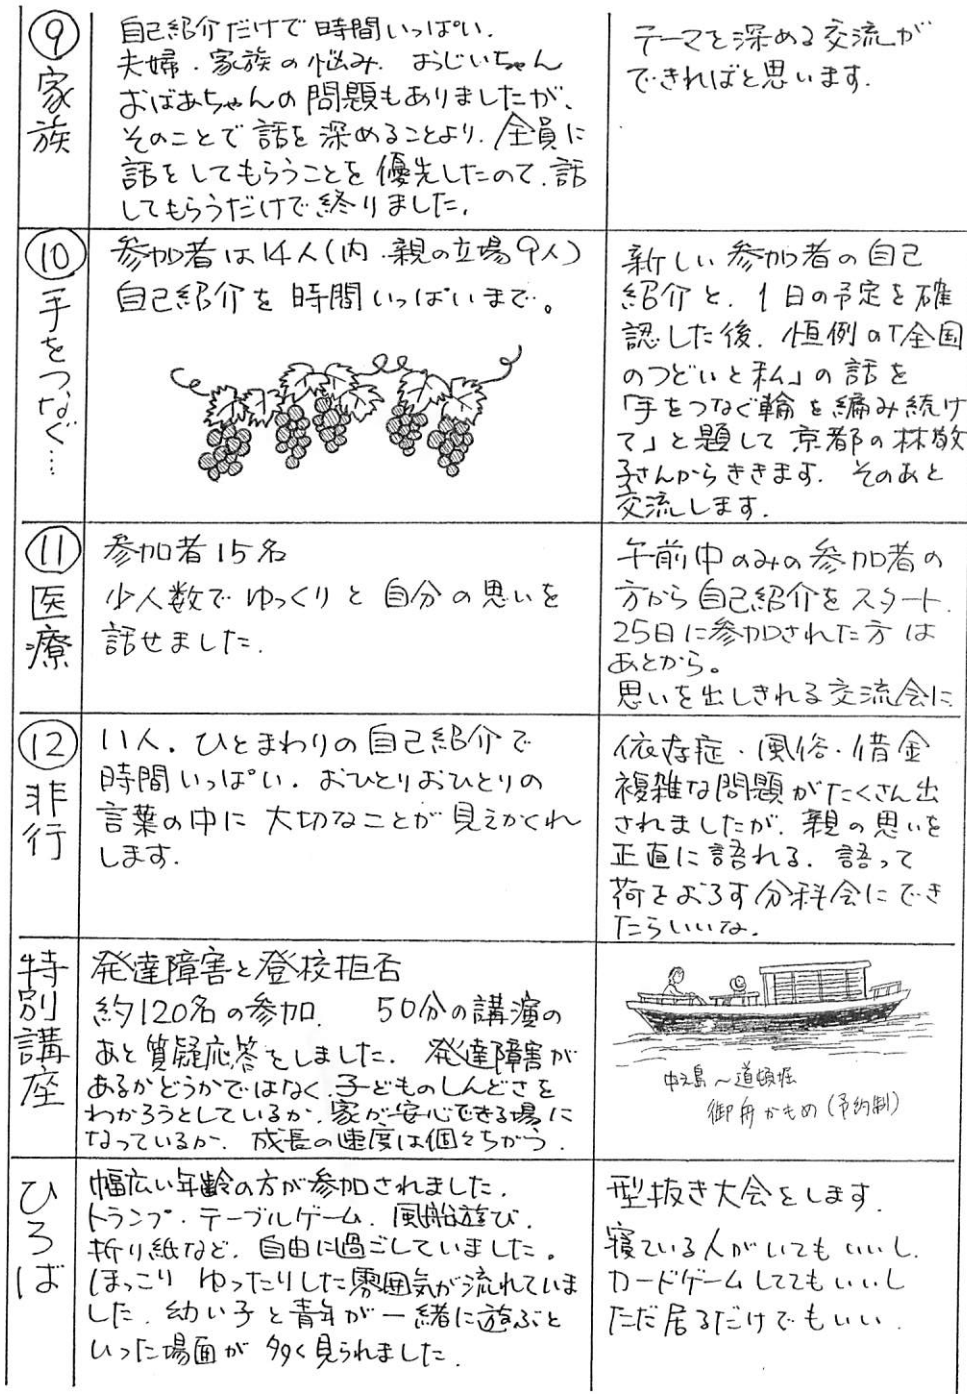 ⑨家族
自己紹介だけで時間いっぱい.
夫婦.家族の悩み. おじいちゃん
おばあちゃんの問題もありましたが、
そのことで話を深めることより.全員に
話をしてもらうことを優先したので.話
してもらうだけで終りました.
テーマを深める交流が
できればと思います.
⑩手をつなぐ…
参加者は14人(内.親の立場9人)
自己紹介を時間いっぱいまで。
新しい参加者の自己
紹介と.1日の予定を確
認した後.恒例の「全国
のつどいと私」の話を
「手をつなぐ輪を編み続け
て」と題して京都の林敬
子さんからききます. そのあと
交流します.
⑪医療
参加者15名
少人数でゆっくりと自分の思いを
話せました.
午前中のみの参加者の
方から自己紹介をスタート.
25日に参加された方は
あとから。
思いを出しきれる交流会に.
⑫非行
11人.ひとまわりの自己紹介で
時間いっぱい.おひとりおひとりの
言葉の中に大切なことが見えかくれ
します.
依存症・風俗・借金
複雑な問題がたくさん出
されましたが.親の思いを
正直に語れる.語って
荷をおろす分科会にでき
たらいいな.
特別講座
発達障害と登校拒否
約120名の参加. 50分の講演の
あと質疑応答をしました. 発達障害が
あるかどうかではなく.子どものしんどさを
わかろうとしているか.家が安心できる場に
なっているか. 成長の速度は個々ちがう.
中之島～道頓堀
御舟かもめ(予約制)
ひろば
幅広い年齢の方が参加されました.
トランプ.テーブルゲーム.風船遊び.
折り紙など.自由に過ごしていました。
ほっこり ゆったりした雰囲気が流れていま
した.幼い子と青年が一緒に遊ぶと
いった場面が多く見られました.
型抜き大会をします.
寝ている人がいてもいいし.
カードゲームしててもいいし
ただ居るだけでもいい.